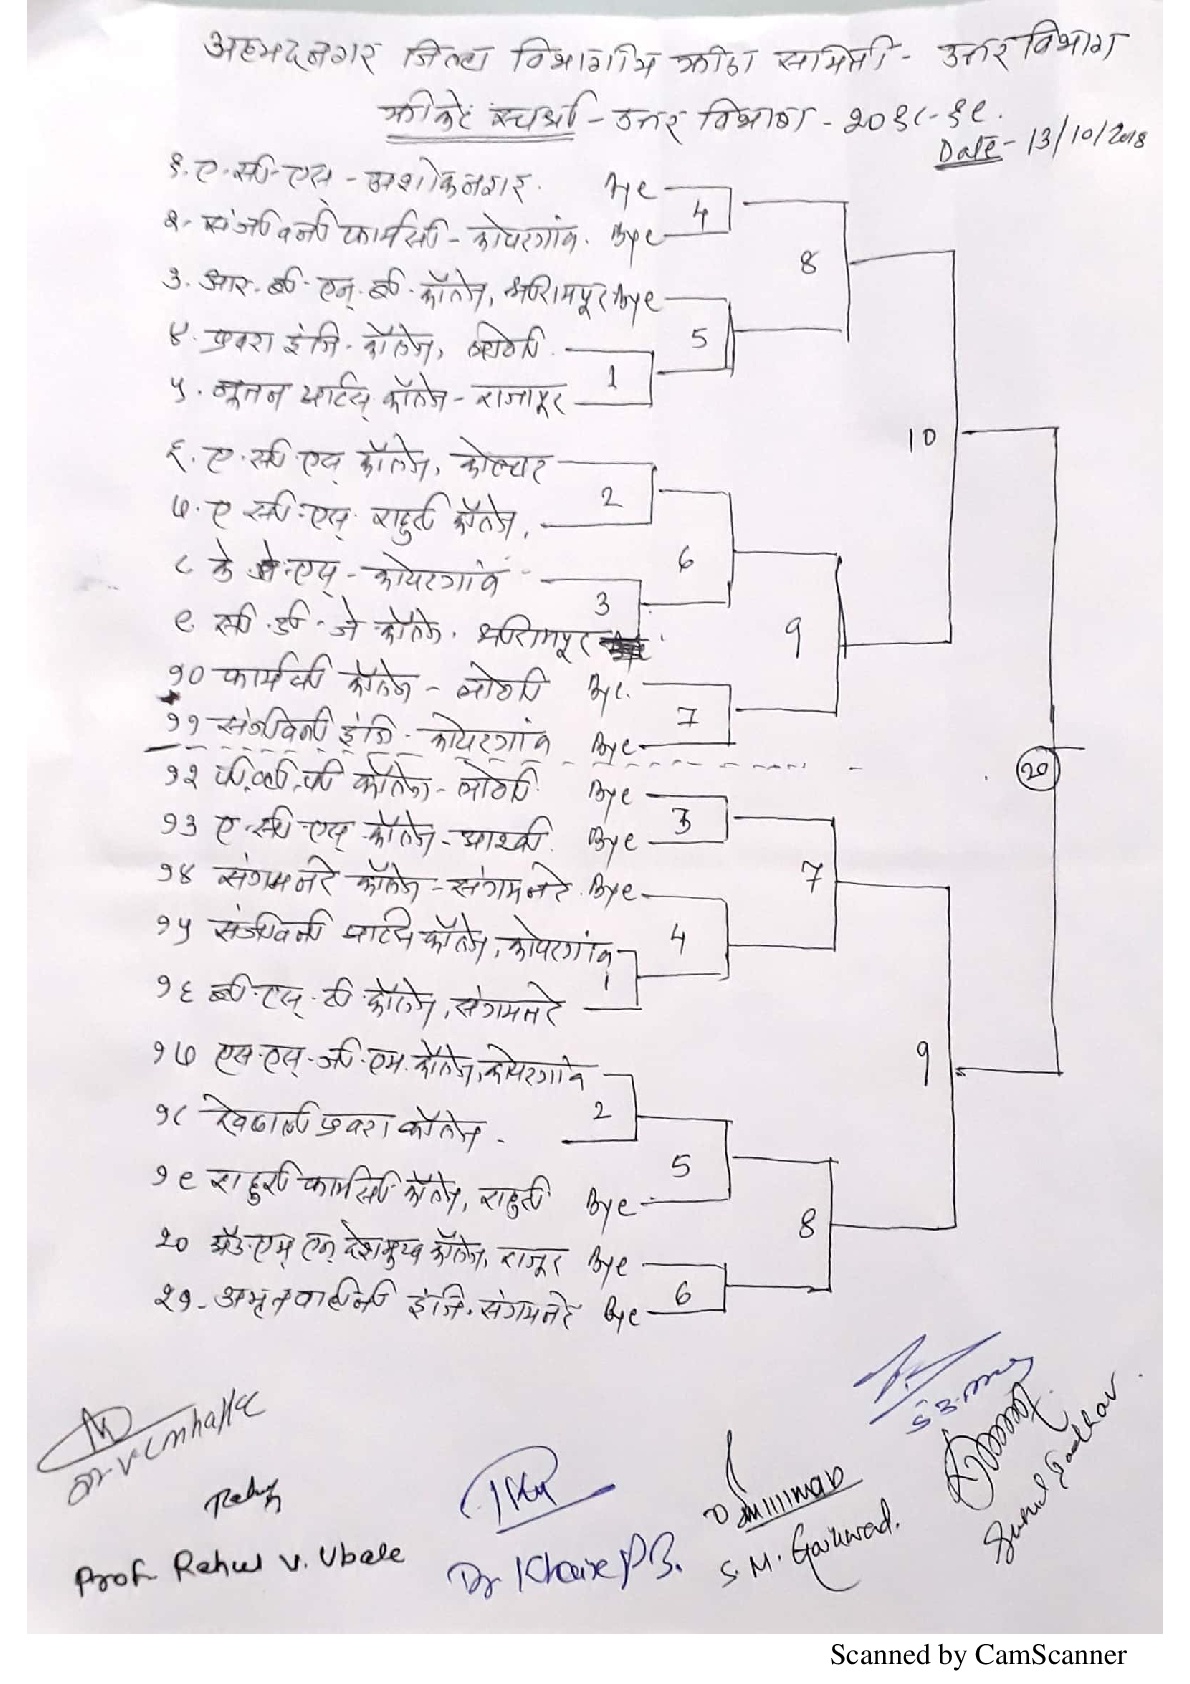 अहमदनगर जिल्हा विभागीय क्रीडा समिती - उत्तर विभाग
क्रीकेट स्पर्धा - उत्तर विभाग - २०१८-१९.
Date - 13/10/2018
१. ए. सी. एस - अशोकनगर. Bye
4
२. संजीवनी फार्मसी - कोपरगांव. Bye
8
३. आर. बी. एन. बी. कॉलेज, श्रीरामपूर Bye
5
४. प्रवरा इंजि. कॉलेज, लोणी.
1
५. नूतन आर्टस् कॉलेज - राजापूर
10
६. ए. सी. एस् कॉलेज, कोल्हार
2
७. ए सी. एस्. राहुरी कॉलेज.
6
८ के जे. एस् - कोपरगांव
3
९. सी. डी. जे कॉलेज. श्रीरामपूर
9
१० फार्मसी कॉलेज - लोणी Bye.
7
११ संजीवनी इंजि. कोपरगांव Bye
20
१२ पी. व्ही. पी कॉलेज - लोणी Bye
3
१३ ए. सी. एस् कॉलेज - आश्वी. Bye
7
१४ संगमनेर कॉलेज - संगमनेर. Bye
4
१५ संजीवनी आर्टस कॉलेज, कोपरगांव
1
१६ बी. एस्. टी कॉलेज, संगमनेर
9
१७ एस. एस्. जी. एम. कॉलेज, कोपरगांव
2
१८ प्रवरा कॉलेज.
5
१९ राहुरी फार्मसी कॉलेज, राहुरी Bye
8
२० अॅड. एम् एन् देशमुख कॉलेज, राजूर Bye
6
२१ - अमृतवाहीनी इंजि. संगमनेर Bye
Prof. Rahul V. Ubale
Dr. Khaire P B.
S. M. Gaikwad.
Sunil Gadhav
Scanned by CamScanner